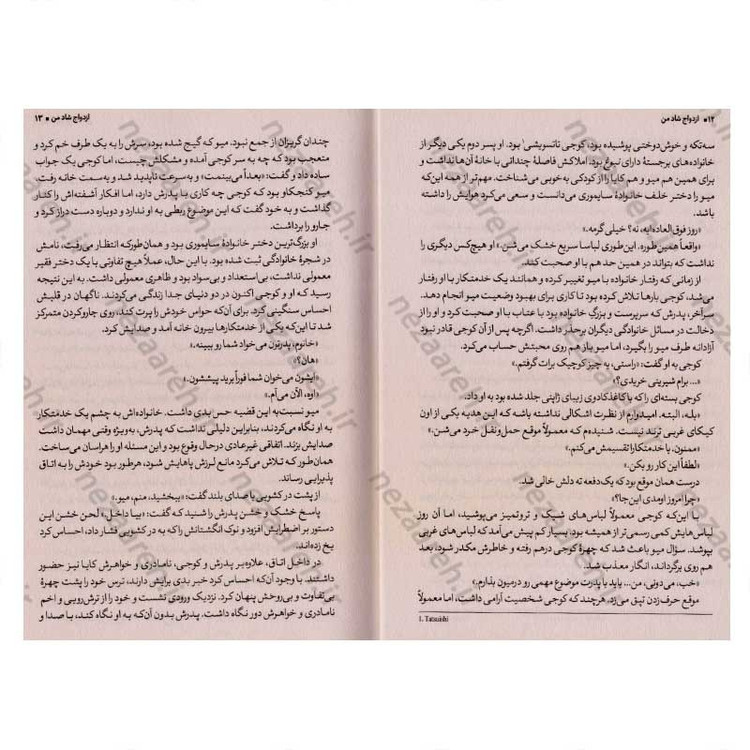 ۱۲ ■ ازدواج شاد من
سه‌تکه و خوش‌دوختی پوشیده بود، کوجی تاتسویشی¹ بود. او پسر دوم یکی دیگر از
خانواده‌های برجستهٔ دارای نبوغ بود. املاکش فاصلهٔ چندانی با خانهٔ آن‌ها نداشت و
برای همین هم میو و هم کایا را از کودکی به‌خوبی می‌شناخت. مهم‌تر از همه این‌که
میو را دختر خلف خانوادهٔ سایموری می‌دانست و سعی می‌کرد هوایش را داشته
باشد.
«روز فوق‌العاده‌ایه، نه؟ خیلی گرمه.»
«واقعاً همین‌طوره. این‌طوری لباسا سریع خشک می‌شن.» او هیچ‌کس دیگری را
نداشت که بتواند در همین حد هم با او صحبت کند.
از زمانی که رفتار خانواده با میو تغییر کرده و همانند یک خدمتکار با او رفتار
می‌شد، کوجی بارها تلاش کرده بود تا کاری برای بهبود وضعیت میو انجام دهد.
سرآخر، پدرش که سرپرست و بزرگ خانواده بود با عتاب با او صحبت کرد و او را از
دخالت در مسائل خانوادگی دیگران برحذر داشت. اگرچه پس از آن کوجی قادر نبود
آزادانه طرف میو را بگیرد، اما میو باز هم روی محبتش حساب می‌کرد.
کوجی به او گفت: «راستی، یه چیز کوچیک برات گرفتم.»
«... برام شیرینی خریدی؟»
کوجی بسته‌ای را که با کاغذکادوی زیبای ژاپنی جلد شده بود به او داد.
«بله، البته. امیدوارم از نظرت اشکالی نداشته باشه که این هدیه یکی از اون
کیکای غربی ترند نیست. شنیده‌م که معمولاً موقع حمل‌ونقل خرد می‌شن.»
«ممنون. با خدمتکارا تقسیمش می‌کنم.»
«لطفاً این کار رو بکن.»
درست همان موقع بود که یک‌دفعه ته دلش خالی شد.
«چرا امروز اومدی این‌جا؟»
با این‌که کوجی معمولاً لباس‌های شیک و تروتمیز می‌پوشید، اما آن روز
لباس‌هایش کمی رسمی‌تر از همیشه بود. بسیار کم پیش می‌آمد که لباس‌های غربی
بپوشد. سؤال میو باعث شد که چهرهٔ کوجی درهم رفته و خاطرش مکدر شود، بعد
هم روی برگرداند، انگار معذب شد.
«خب، می‌دونی، من... باید با پدرت موضوع مهمی رو درمیون بذارم.»
موقع حرف زدن تپق می‌زد. هرچند که کوجی شخصیت آرامی داشت، اما معمولاً
1. Tatsuishi
ازدواج شاد من ■ ۱۳
چندان گریزان از جمع نبود. میو که گیج شده بود، سرش را به یک طرف خم کرد و
متعجب بود که چه به سر کوجی آمده و مشکلش چیست، اما کوجی یک جواب
ساده داد و گفت: «بعداً می‌بینمت» و به‌سرعت ناپدید شد و به‌سمت خانه رفت.
میو کنجکاو بود که کوجی چه کاری با پدرش دارد، اما افکار آشفته‌اش را کنار
گذاشت و به خود گفت که این موضوع ربطی به او ندارد و دوباره دست دراز کرد و
جارو را برداشت.
او بزرگ‌ترین دختر خانوادهٔ سایموری بود و همان‌طورکه انتظار می‌رفت، نامش
در شجرهٔ خانوادگی ثبت شده بود. با این حال، عملاً هیچ تفاوتی با یک دختر فقیر
معمولی نداشت، بی‌استعداد و بی‌سواد بود و ظاهری معمولی داشت. به این نتیجه
رسید که او و کوجی اکنون در دو دنیای جدا زندگی می‌کردند. ناگهان در قلبش
احساس سنگینی کرد. برای آن‌که حواس خودش را پرت کند، روی جاروکردن متمرکز
شد تا این‌که یکی از خدمتکارها بیرون خانه آمد و صدایش کرد.
«خانوم، پدرتون می‌خواد شما رو ببینه.»
«هان؟»
«ایشون می‌خوان شما فوراً برید پیششون.»
«اوه، الآن می‌آم.»
میو نسبت‌به این قضیه حس بدی داشت. خانواده‌اش به چشم یک خدمتکار
به او نگاه می‌کردند، بنابراین دلیلی نداشت که پدرش، به‌ویژه وقتی مهمان داشت
صدایش بزند. اتفاقی غیرعادی درحال وقوع بود و این مسئله او را هراسان می‌ساخت.
همان‌طور که تلاش می‌کرد مانع لرزش پاهایش شود، هرطور بود خودش را به اتاق
پذیرایی رساند.
از پشت در کشویی با صدای بلند گفت: «ببخشید، منم، میو.»
پاسخ خشک و خشن پدرش را شنید که گفت: «بیا داخل.» لحن خشن این
دستور بر اضطرابش افزود و نوک انگشتانش را که به در کشویی فشار داد، احساس کرد
یخ زده‌اند.
در داخل اتاق، علاوه‌بر پدرش و کوجی، نامادری و خواهرش کایا نیز حضور
داشتند. با وجود آن‌که احساس کرد خبر بدی برایش دارند، ترس خود را پشت چهرهٔ
بی‌تفاوت و بی‌روحش پنهان کرد. نزدیک ورودی نشست و خود را از ترش‌رویی و اخم
نامادری و خواهرش دور نگاه داشت. پدرش بدون آن‌که به او نگاه کند، با صدا و
nezaareh.ir